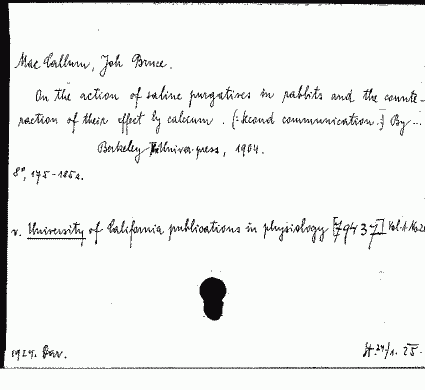 Mac Callum, Joh Bruce.
On the action of saline purgatives in rabbits and the counte-
raction of their effect by calcium. (: Second communication :) By ...
Berkeley Univer. press, 1904.
8°, 175-185 s.
v. University of California publications in physiology [79437] Vol. 1 No. 20
1924. Dar.
24/1. 25.